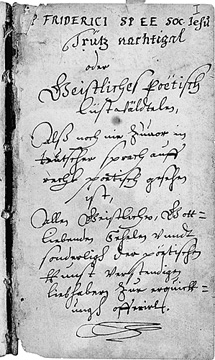 I
P FRIDERICI SPEE SOC. Jesu
Trutz nachtigal
oder
Geistliches Poëtisch
Lustwäldelein,
Alß noch nie Zuvor in
teutscher sprach auff
recht poëtisch gesehen
ist,
Allen Geistlichen, Gott-
liebenden Seelen vnndt
sonderlich der poëtischen
kunst verstendigen
liebhabern Zur erquick-
ungh offerirt.